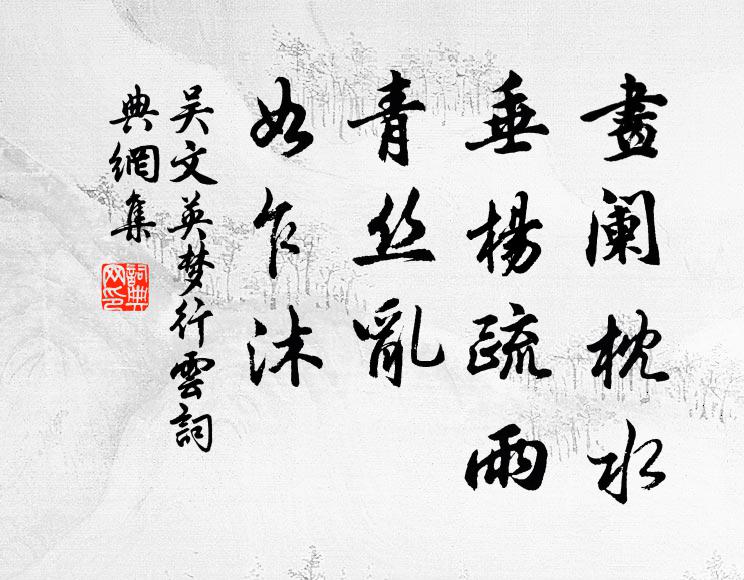 畫阑枕水
垂楊疏雨
青丝亂
如乍沐
吴文英梦行雲詞
典網集
詞典
网印